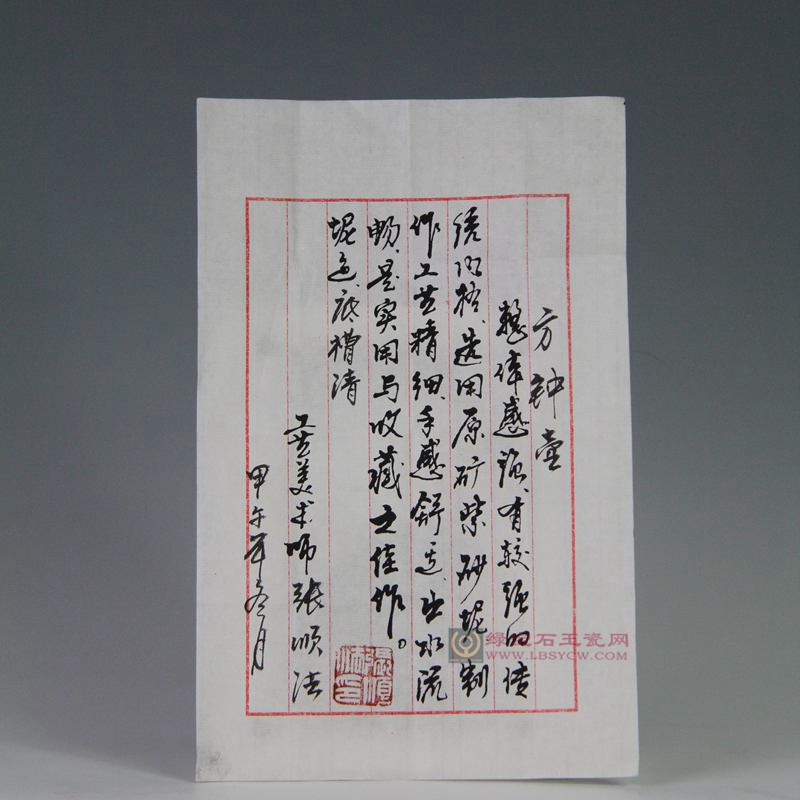 方钟壶
整体感强、有较强的传
统风格、选用原矿紫砂坭制
作工艺精细、手感舒适、出水流
畅、是实用与收藏之佳作。
坭色、底槽清
工艺美术师张顺法
甲午年冬月
张顺法印
石玉瓷网
WWW.LBSYCW.COM